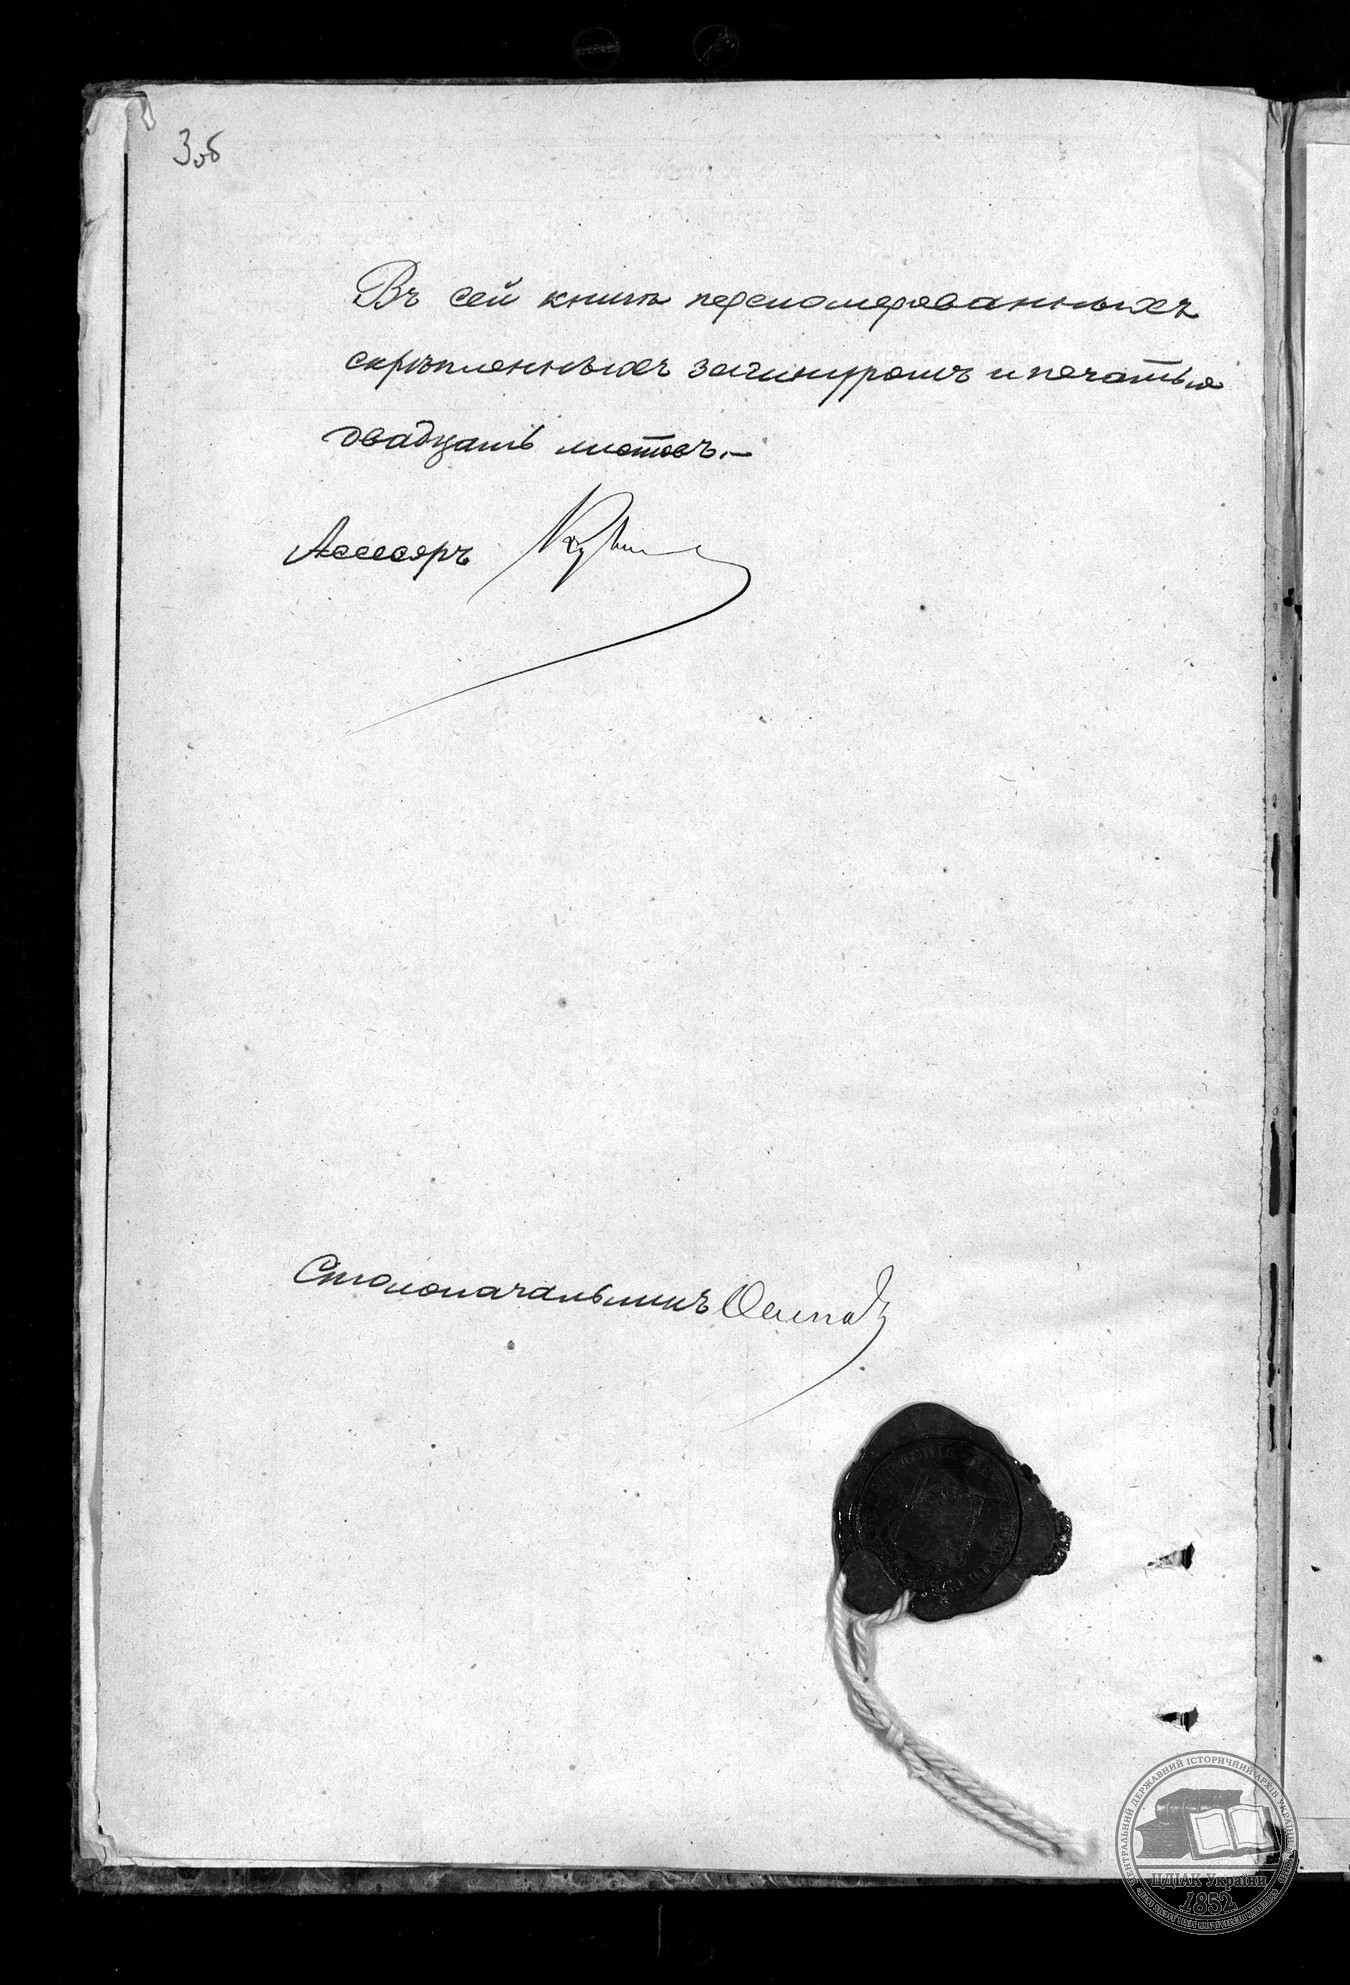 3об
Въ сей книге перепомерованныхъ
скрѣпленныхъ зашнуромъ и печатью
двадцать листовъ.—
Асесоръ
Столоначальникъ
ЦЕНТРАЛЬНИЙ ДЕРЖАВНИЙ ІСТОРИЧНИЙ АРХІВ УКРАЇНИ
ЦДІАК України
1852